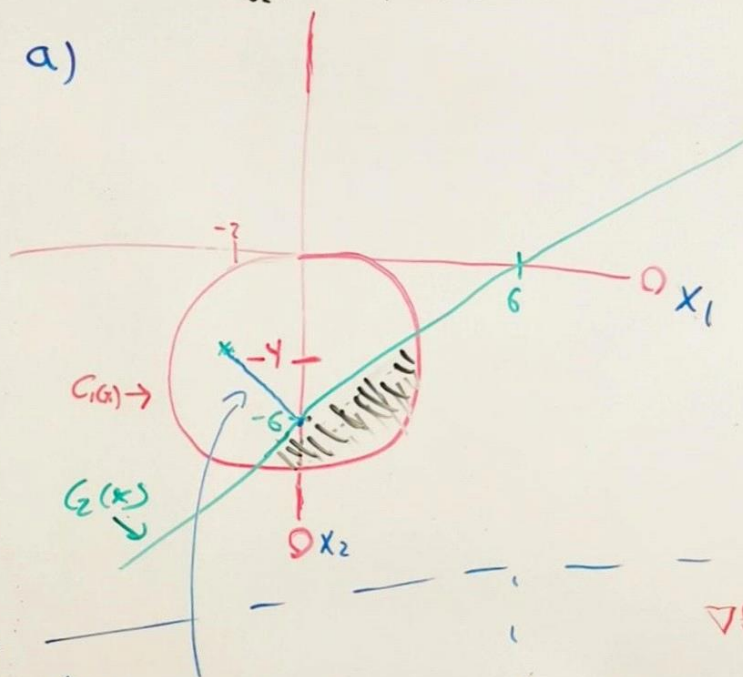 a)
-2
6
X₁
-4
C₁(x)→
-6
C₂(x)
X₂